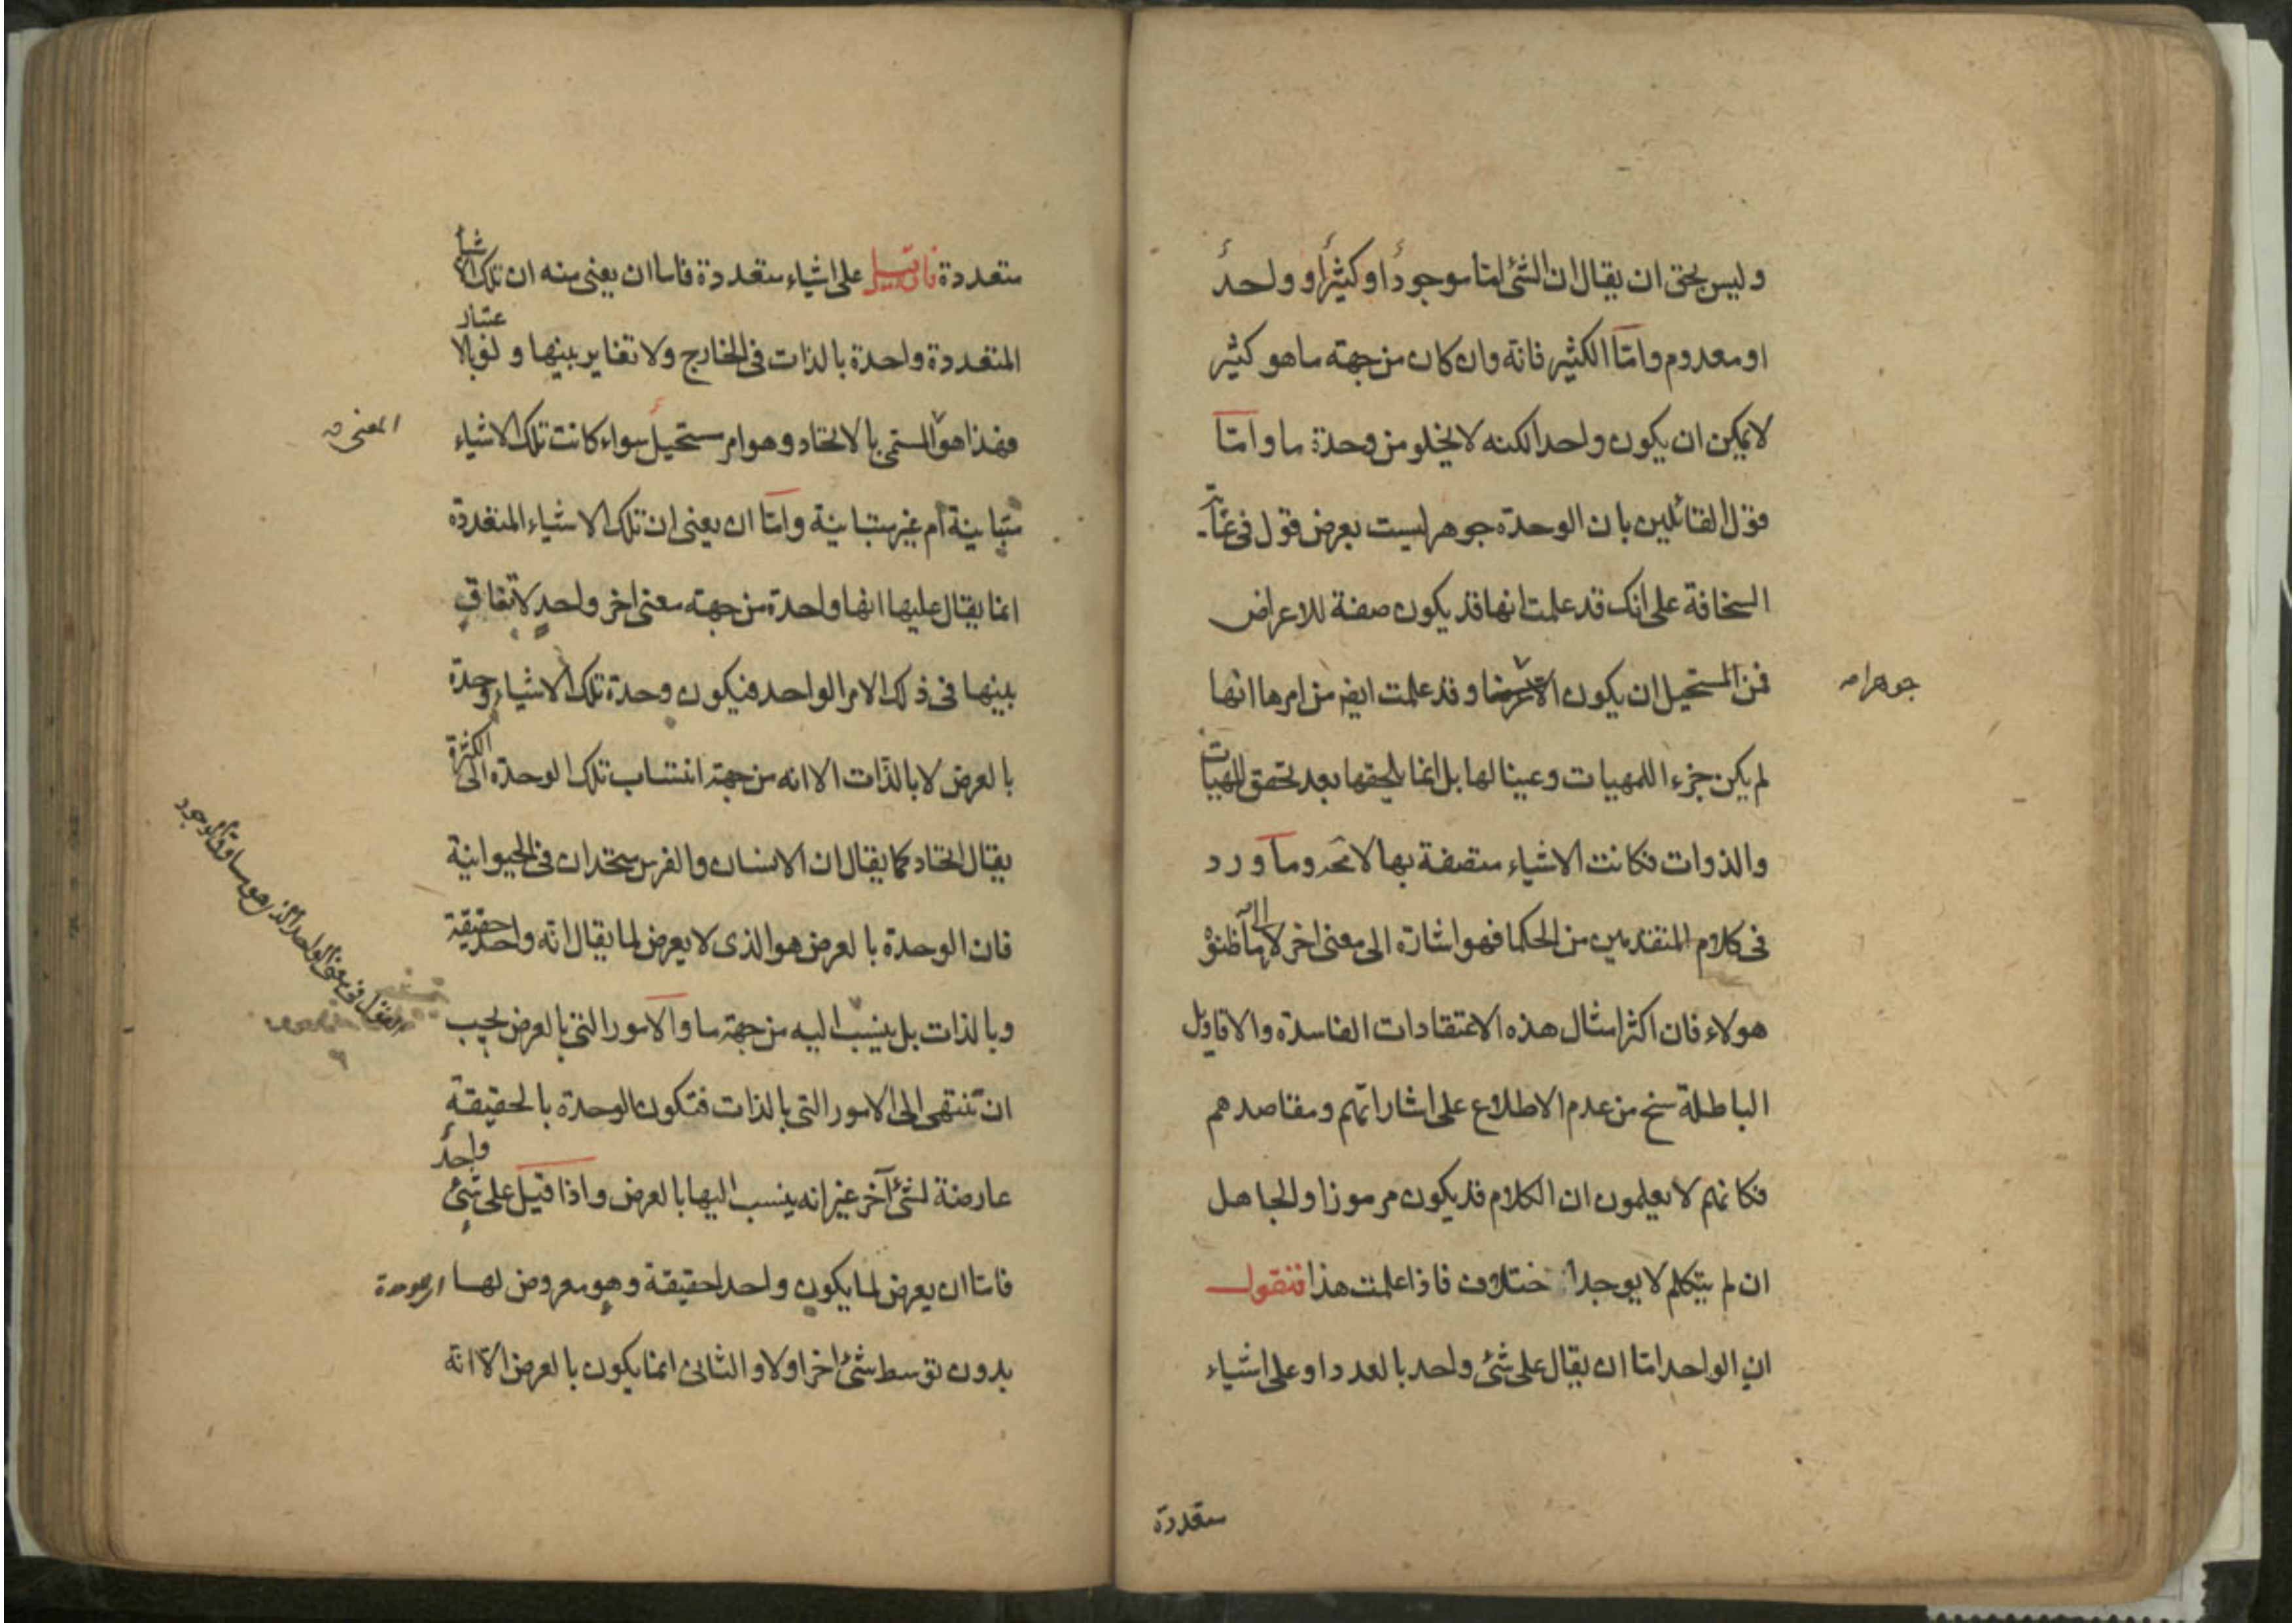 وليس بحق ان يقال ان الشئ اما موجود او كثير او واحد
او معدوم واما الكثير فانه وان كان من جهته ما هو كثير
لا يمكن ان يكون واحدا لكنه لا يخلو من وحدة ما واما
قول القائلين بان الوحدة جوهر ليست بعرض قول فى غاية
السخافة على انك قد علمت انها قد يكون صفة للاعراض
فمن المستحيل ان يكون الا وقد علمت ايضا من امرها انها
جوهرا صه
لم يكن جزءا للمهيات وعينا لها بل انما يلحقها بعد تحقق المهيات
والذوات فكانت الاشياء متصفة بها لا وما ورد
فى كلام المتقدمين من الحكما فهو اشارة الى معنى اخر لا الى ما ظنوه
هولاء فان اكثر امثال هذه الاعتقادات الفاسدة والاقاويل
الباطلة سنخ من عدم الاطلاع على اشاراتهم ومقاصدهم
فكانهم لا يعلمون ان الكلام قد يكون مرموزا والجاهل
ان لم يتكلم لا يوجد اختلاف فاذا علمت هذا فنقول
ان الواحد اما ان يقال على شئ واحد بالعدد او على اشياء
متعددة
متعددة فان قيل على اشياء متعددة فاما ان يعنى منه ان تلك الاشيا
المتعددة واحدة بالذات فى الخارج ولا تغاير بينها ولو بالاعتبار
فهذا هو المسمى بالاتحاد وهو امر مستحيل سواء كانت تلك الاشياء
المعنى صه
متباينة ام غير متباينة واما ان يعنى ان تلك الاشياء المتعددة
انما يقال عليها انها واحدة من جهته معنى اخر واحد لاتفاق
بينها فى ذلك الامر الواحد فيكون وحدة تلك الاشياء وحدة
بالعرض لا بالذات الا انه من جهة انتساب تلك الوحدة الى الكثرة
يقال اتحاد كما يقال ان الانسان والفرس متحدان فى الحيوانية
فان الوحدة بالعرض هو الذى لا يعرض لما يقال انه واحد حقيقة
وبالذات بل ينسب اليه من جهة ما والامور التى بالعرض يجب
ان تنتهى الى الامور التى بالذات فتكون الوحدة بالحقيقة
عارضة لشئ آخر غير انه ينسب اليها بالعرض واذا قيل على شئ واحد
فاما ان يعرض لما يكون واحدا حقيقة وهو معروض لها اى الوحدة
بدون توسط شئ اخر اولا والثانى انما يكون بالعرض الا انه